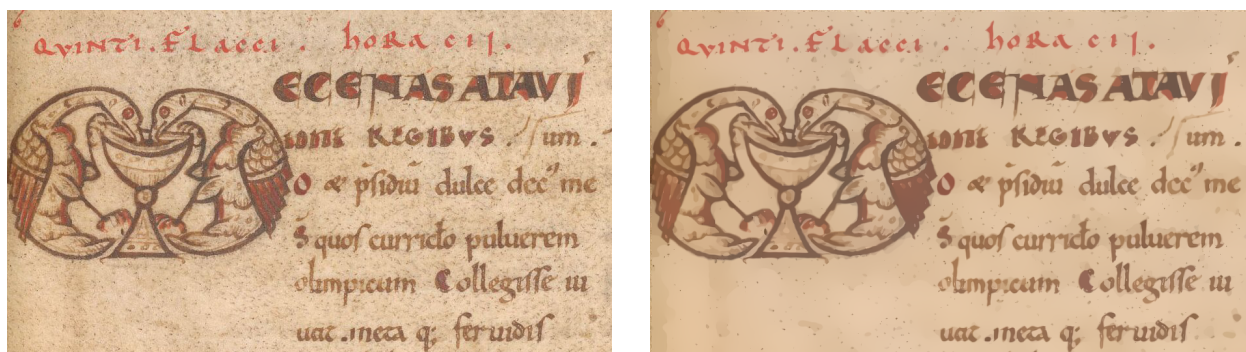 QVINTI . FLACCI . hORACIJ .
ECENAS ATAVI
REGIBVS . um .
O & p̄sidiū dulce dec᷒ me
S̄ quoſ curriclo puluerem
olimpicum Collegiſſe iu
uat . meta q; feruidiſ
QVINTI . FLACCI . hORACIJ .
ECENAS ATAVI
REGIBVS . um .
O & p̄sidiū dulce dec᷒ me
S̄ quoſ curriclo puluerem
olimpicum Collegiſſe iu
uat . meta q; feruidiſ